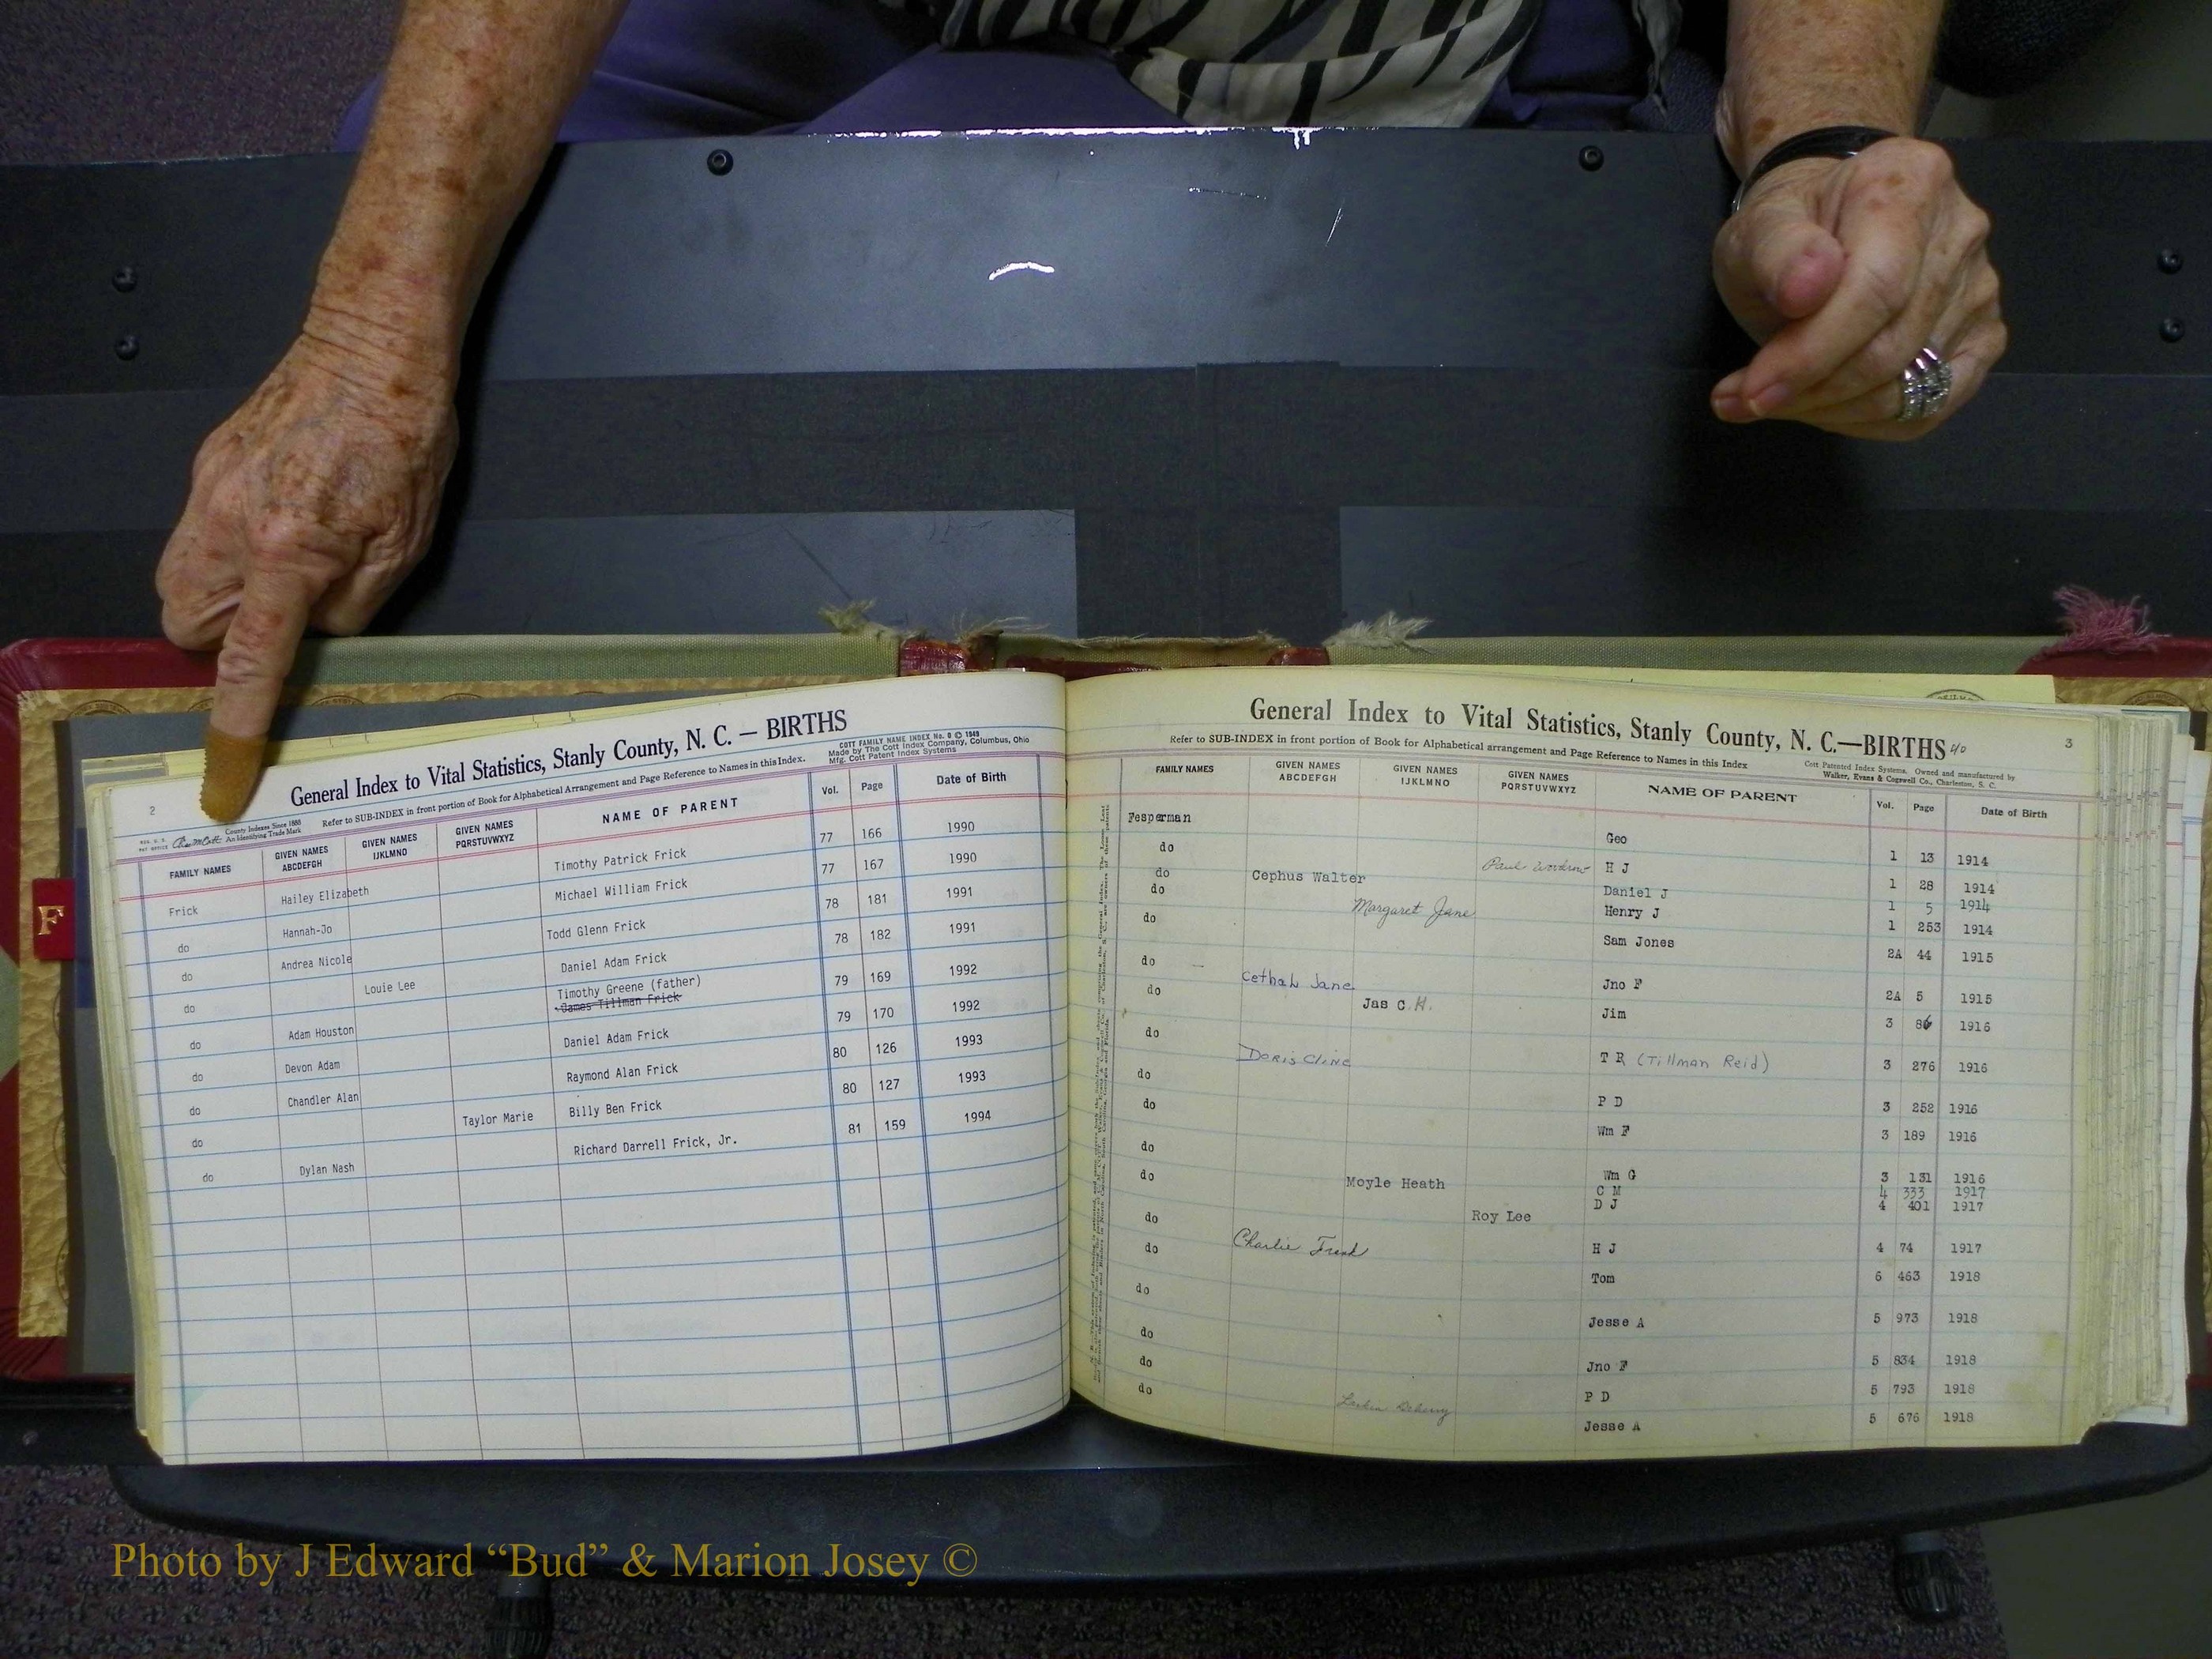 F
2
General Index to Vital Statistics, Stanly County, N. C. — BIRTHS
COTT FAMILY NAME INDEX No. 0 © 1949
Made by The Cott Index Company, Columbus, Ohio
Mfg. Cott Patent Index Systems
County Indexes Since 1888
An Identifying Trade Mark
Refer to SUB-INDEX in front portion of Book for Alphabetical Arrangement and Page Reference to Names in this Index.
FAMILY NAMES GIVEN NAMES ABCDEFGH GIVEN NAMES IJKLMNO GIVEN NAMES PQRSTUVWXYZ NAME OF PARENT Vol. Page Date of Birth
Frick Hailey Elizabeth Timothy Patrick Frick 77 166 1990
do Hannah-Jo Michael William Frick 77 167 1990
do Andrea Nicole Todd Glenn Frick 78 181 1991
do Louie Lee Daniel Adam Frick 78 182 1991
Timothy Greene (father)
do Adam Houston James Tillman Frick 79 169 1992
do Devon Adam Daniel Adam Frick 79 170 1992
do Chandler Alan Raymond Alan Frick 80 126 1993
do Taylor Marie Billy Ben Frick 80 127 1993
do Dylan Nash Richard Darrell Frick, Jr. 81 159 1994
General Index to Vital Statistics, Stanly County, N. C.—BIRTHS 40
3
Refer to SUB-INDEX in front portion of Book for Alphabetical arrangement and Page Reference to Names in this Index
Cott Patented Index Systems. Owned and manufactured by
Walker, Evans & Cogswell Co., Charleston, S. C.
FAMILY NAMES GIVEN NAMES ABCDEFGH GIVEN NAMES IJKLMNO GIVEN NAMES PQRSTUVWXYZ NAME OF PARENT Vol. Page Date of Birth
Fesperman Geo 1 13 1914
do Paul H J 1 28 1914
do Cephus Walter Daniel J 1 5 1914
do Margaret Jane Henry J 1 253 1914
do Sam Jones 2A 44 1915
do Cethal Jane Jno F 2A 5 1915
do Jas C. H. Jim 3 1916
do Doris Cline T R (Tillman Reid) 3 276 1916
do P D 3 252 1916
do Wm F 3 189 1916
do Wm G 3 131 1916
C M 4 333 1917
do Moyle Heath D J 4 401 1917
do Roy Lee H J 4 74 1917
do Charlie Tom 6 463 1918
do Jesse A 5 973 1918
do Jno F 5 834 1918
do P D 5 793 1918
do Jesse A 5 676 1918
Photo by J Edward “Bud” & Marion Josey ©